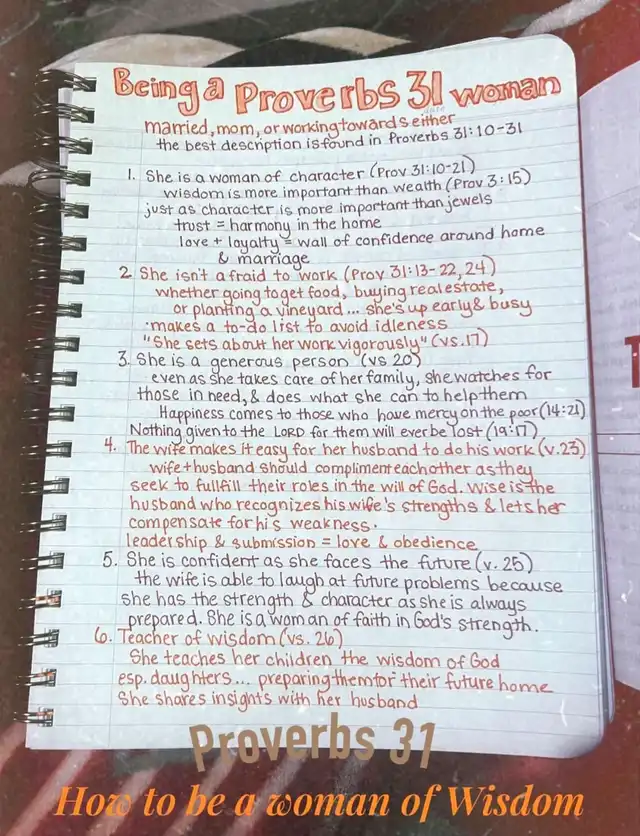 Being a Proverbs 31 woman
married, mom, or working towards either
the best description is found in Proverbs 31:10-31
1. She is a woman of character (Prov 31:10-21)
wisdom is more important than wealth (Prov 3:15)
just as character is more important than jewels
trust = harmony in the home
love + loyalty = wall of confidence around home
& marriage
2. She isn't afraid to work (Prov 31:13-22, 24)
whether going to get food, buying real estate,
or planting a vineyard... she's up early & busy
·makes a to-do list to avoid idleness
"She sets about her work vigorously" (vs.17)
3. She is a generous person (vs 20)
even as she takes care of her family, she watches for
those in need, & does what she can to help them
Happiness comes to those who have mercy on the poor (14:21)
Nothing given to the LORD for them will ever be lost (19:17)
4. The wife makes it easy for her husband to do his work (v.23)
wife + husband should compliment eachother as they
seek to fullfill their roles in the will of God. Wise is the
husband who recognizes his wife's strengths & lets her
compensate for his weakness.
leadership & submission = love & obedience
5. She is confident as she faces the future (v. 25)
the wife is able to laugh at future problems because
she has the strength & character as she is always
prepared. She is a woman of faith in God's strength.
6. Teacher of wisdom (vs. 26)
She teaches her children the wisdom of God
esp. daughters... preparing them for their future home
She shares insights with her husband
Proverbs 31
How to be a woman of Wisdom